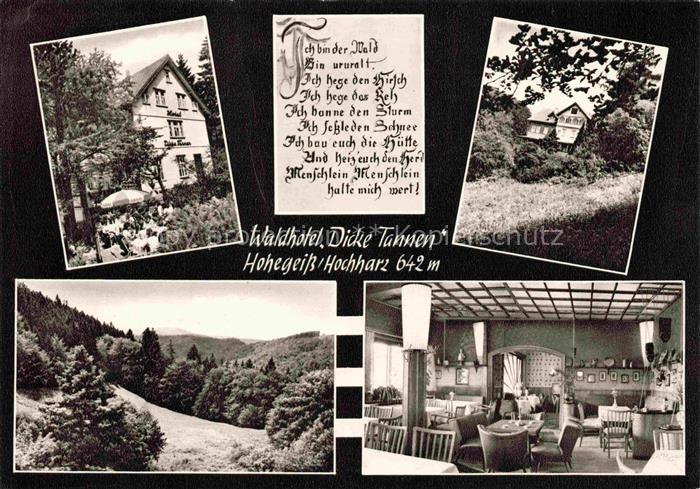 Ich bin der Wald
Bin ururalt.
Ich hege den Hirsch
Ich hege das Reh
Ich banne den Sturm
Ich feßle den Schnee
Ich bau euch die Hütte
Und heiz euch den Herd
Menschlein Menschlein
halte mich wert!
Hotel
Dicke Tannen
Waldhotel „Dicke Tannen"
Hohegeiß/Hochharz 642 m
copy protection * * Kopierschutz